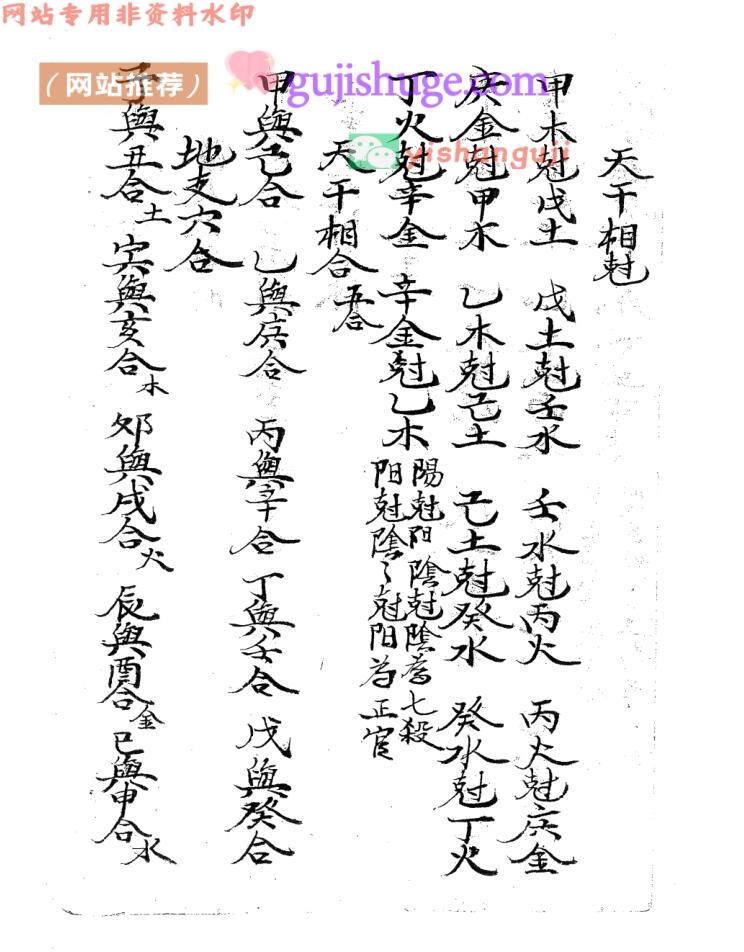 网站专用非资料水印
（网站推荐）
gujishuge.com
yishanguji
天干相尅
甲木尅戊土 戊土尅壬水 壬水尅丙火 丙火尅庚金
庚金尅甲木 乙木尅己土 己土尅癸水 癸水尅丁火
丁火尅辛金 辛金尅乙木 陽尅阳 陰尅陰為七殺
阳尅陰〻尅阳为正官
天干相合 五合
甲與己合 乙與庚合 丙與辛合 丁與壬合 戊與癸合
地支六合
子與丑合土 寅與亥合木 卯與戌合火 辰與酉合金 巳與申合水